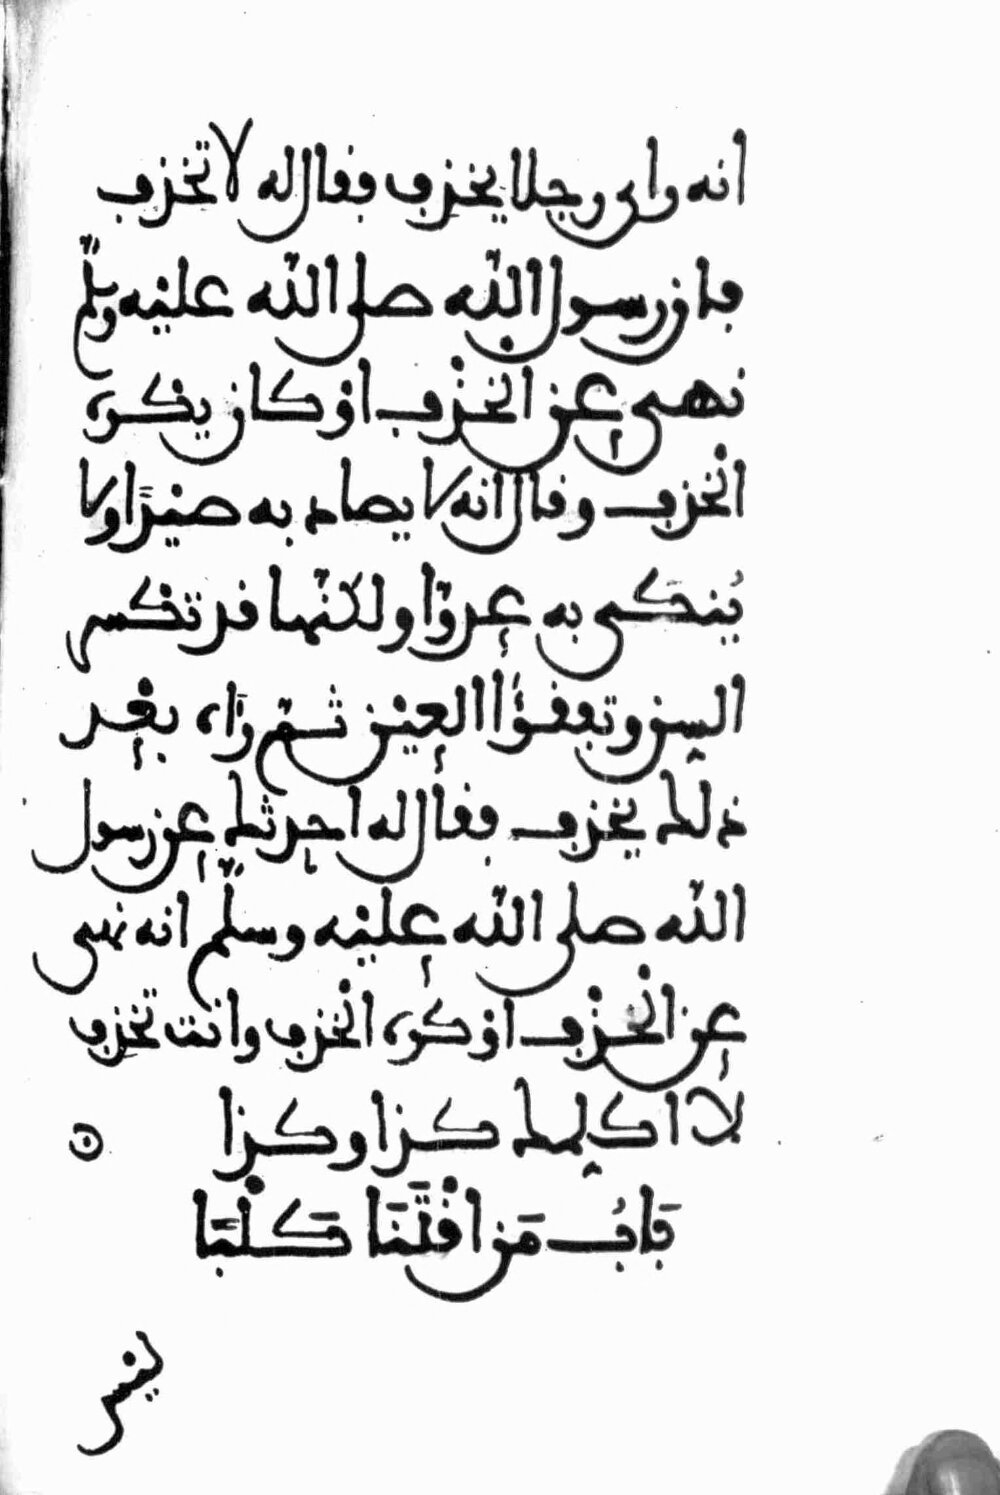 انه راى رجلا يخذف فقال له لا تخذف
فان رسول الله صلى الله عليه وسلم
نهى عن الخذف او كان يكره
الخذف وقال انه لا يصاد به صيدا ولا
ينكى به عدوا ولكنها قد تكسر
السن وتفقؤا العين ثم رءاه بعد
ذلك يخذف فقال له احدثك عن رسول
الله صلى الله عليه وسلم انه نهى
عن الخذف او كره الخذف وانت تخذف
لا اكلمك كذا وكذا
باب من اقتنا كلبا
ليس